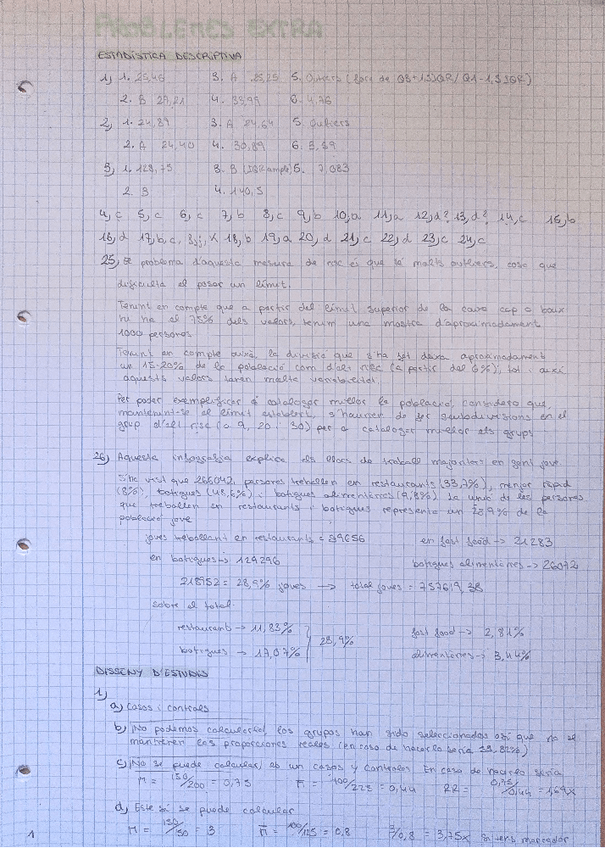 PROBLEMES EXTRA
ESTADÍSTICA DESCRIPTIVA
1) 1. 25,46 3. A 25,25 5. Outliers
2. B 29,21 4. 33,99 6. 4,76
2) 1. 24,89 3. A 24,64 5. Outliers
2. A 24,40 4. 30,89 6. 3,69
3) 1. 128,75 3. B 5. 7,083
2. B 4. 140,5
4, c 5, c 6, c 7, b 8, c 9, b 10, a 11, a 12, d? 13, d? 14, c 15, b
16, d 17, b, c, 18, b 19, a 20, d 21, c 22, d 23, c 24, c
25) El problema d'aquesta mesura de risc és que té molts outliers, cosa que
dificulta el posar un límit.
Tenint en compte que a partir del límit superior de la caixa cap a baix
hi ha el 75% dels valors, tenim una mostra d'aproximadament
1000 persones
Tenint en compte això, la divisió que s'ha fet deixa aproximadament
un 15-20% de la població com d'alt risc (a partir del 6%), tot i així
aquests valors tenen molta variabilitat.
Per poder exemplificar o catalogar millor la població, considero que,
mantenint-se el límit establert, s'haurien de fer subdivisions en el
grup d'alt risc (a 9, 20 i 30) per a catalogar millor els grups
26) Aquesta infografia explica els llocs de treball majoritaris en gent jove
S'ha vist que 266.042 persones treballen en restaurants (33,7%), menjar ràpid
(8%), botigues (48,6%) i botigues alimentàries (9,8%) la unió de les persones
que treballen en restaurants i botigues representa un 28,9% de la
població jove
joves treballant en restaurants = 89656 en fast food → 21283
en botigues → 129296 botigues alimentàries → 26072
218952 = 28,9% joves → total joves = 757619,38
sobre el total:
restaurant → 11,83% fast food → 2,81%
28,9%
botigues → 17,07% alimentàries → 3,44%
DISSENY D'ESTUDIS
1)
a) Casos i controls
b) No podemos calcularlo, los grupos han sido seleccionados así que no se
mantienen las proporciones reales (en caso de hacerlo sería
c) No se puede calcular, es un casos y controles. En caso de hacerlo sería
= 150/200 = 0,75 = 100/225 = 0,44 RR = 0,75/0,44 = 1,69x
d) Este sí se puede calcular
= 150/50 = 3 = 100/125 = 0,8 3/0,8 = 3,75x
1